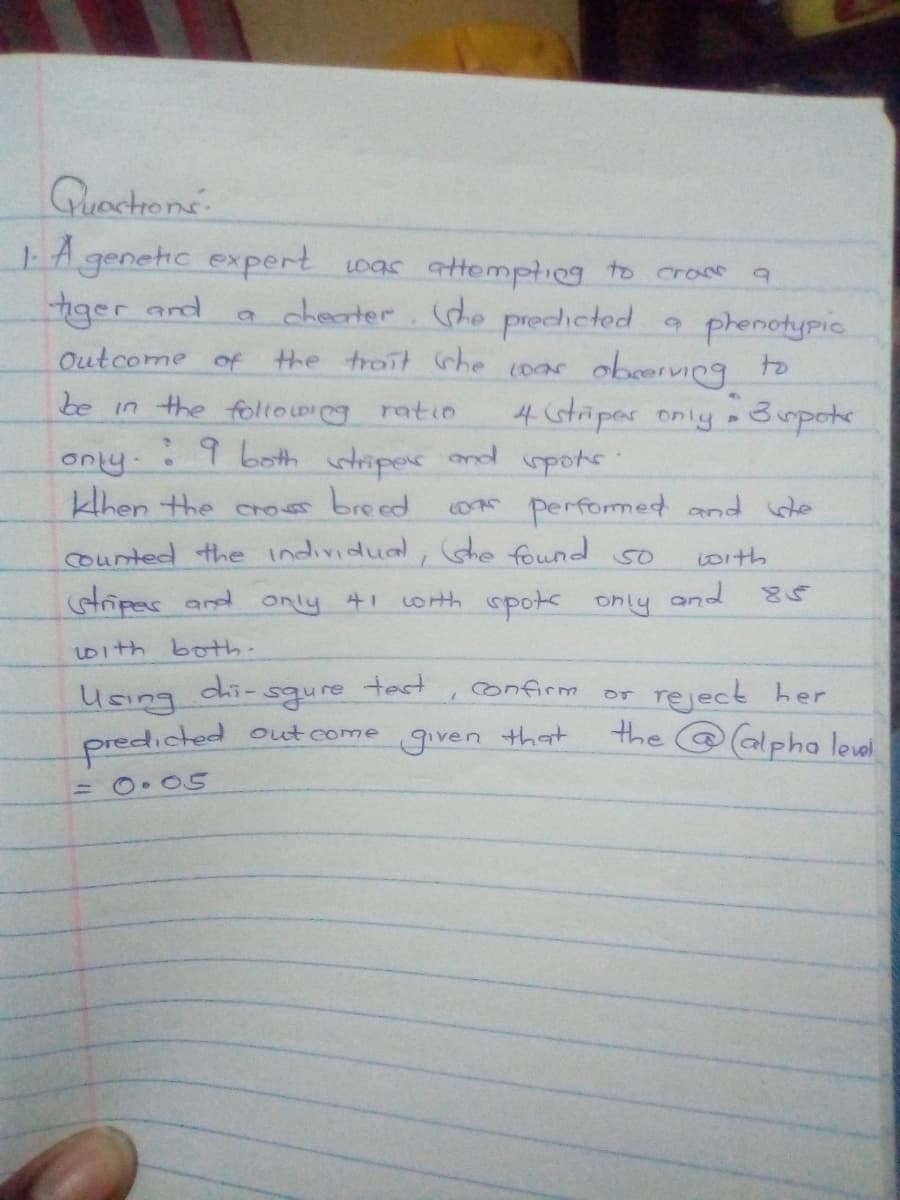 Questions.
1. A genetic expert was attempting to cross a
tiger and a cheater. She predicted a phenotypic
outcome of the trait she was observing to
be in the following ratio 4 stripes only : 3 spots
only. : 9 both stripes and spots.
When the cross breed was performed and she
counted the individual, she found 50 with
stripes and only 41 with spots only and 85
with both.
Using chi-sgure test, confirm or reject her
predicted outcome given that the @ (alpha level
= 0.05